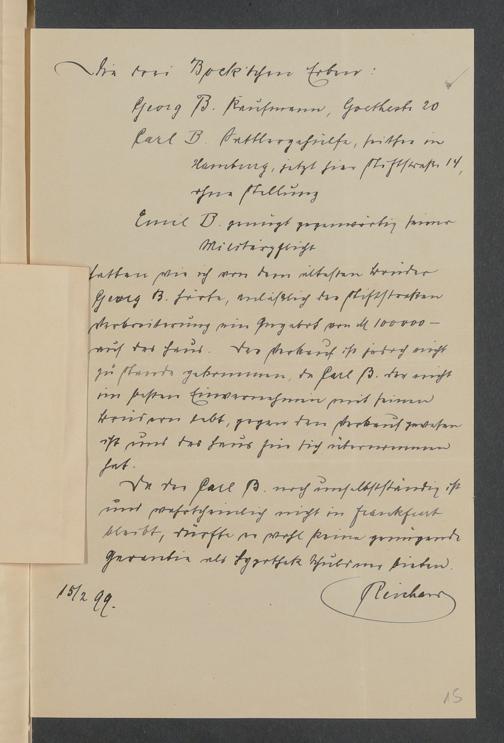 Die drei Bock'schen Erben:
Georg B. Kaufmann, Goethestr 20
Carl B. Sattlergehülfe, seither in
Hamburg, jetzt hier Stiftstraße 14,
ohne Stellung
Emil B. genügt gegenwärtig seiner
Militärpflicht
hatten wie ich von dem ältesten Bruder
Georg B. hörte, anläßlich der Stiftstraßen
Verbreiterung ein Angebot von M 100000 –
auf das Haus. Der Verkauf ist jedoch nicht
zu Stande gekommen, da Carl B. der nicht
im besten Einvernehmen mit seinen
Brüdern lebt, gegen den Verkauf gewesen
ist und das Haus für sich übernommen
hat.
Da der Carl B. noch unselbstständig ist
und wahrscheinlich nicht in Frankfurt
bleibt, dürfte er wohl keine genügende
Garantie als Hypothek Schuldner bieten.
15/2 99.
15